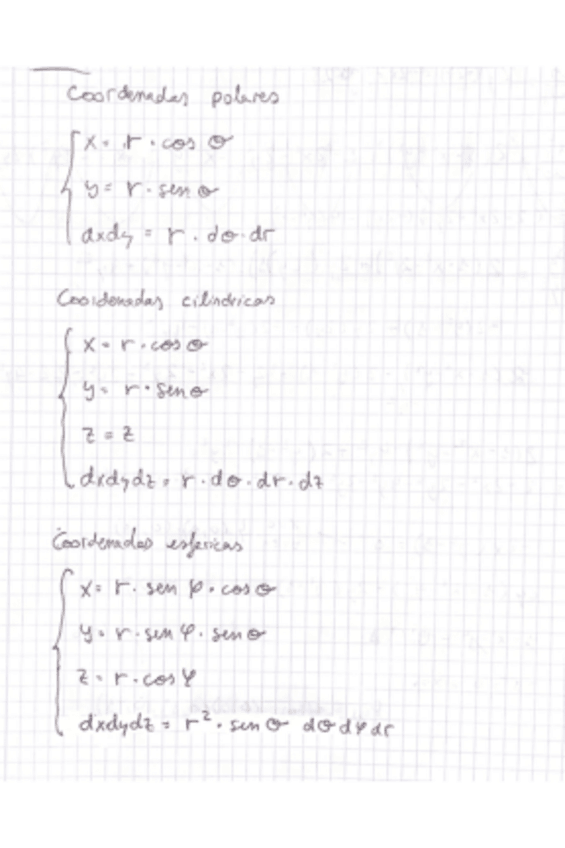 Coordenadas polares
x = r · cos θ
y = r · sen θ
dxdy = r · dθ · dr
Coordenadas cilindricas
x = r · cos θ
y = r · sen θ
z = z
dxdydz = r · dθ · dr · dz
Coordenadas esfericas
x = r · sen φ · cos θ
y = r · sen φ · sen θ
z = r · cos φ
dxdydz = r² · sen θ dθ dφ dr